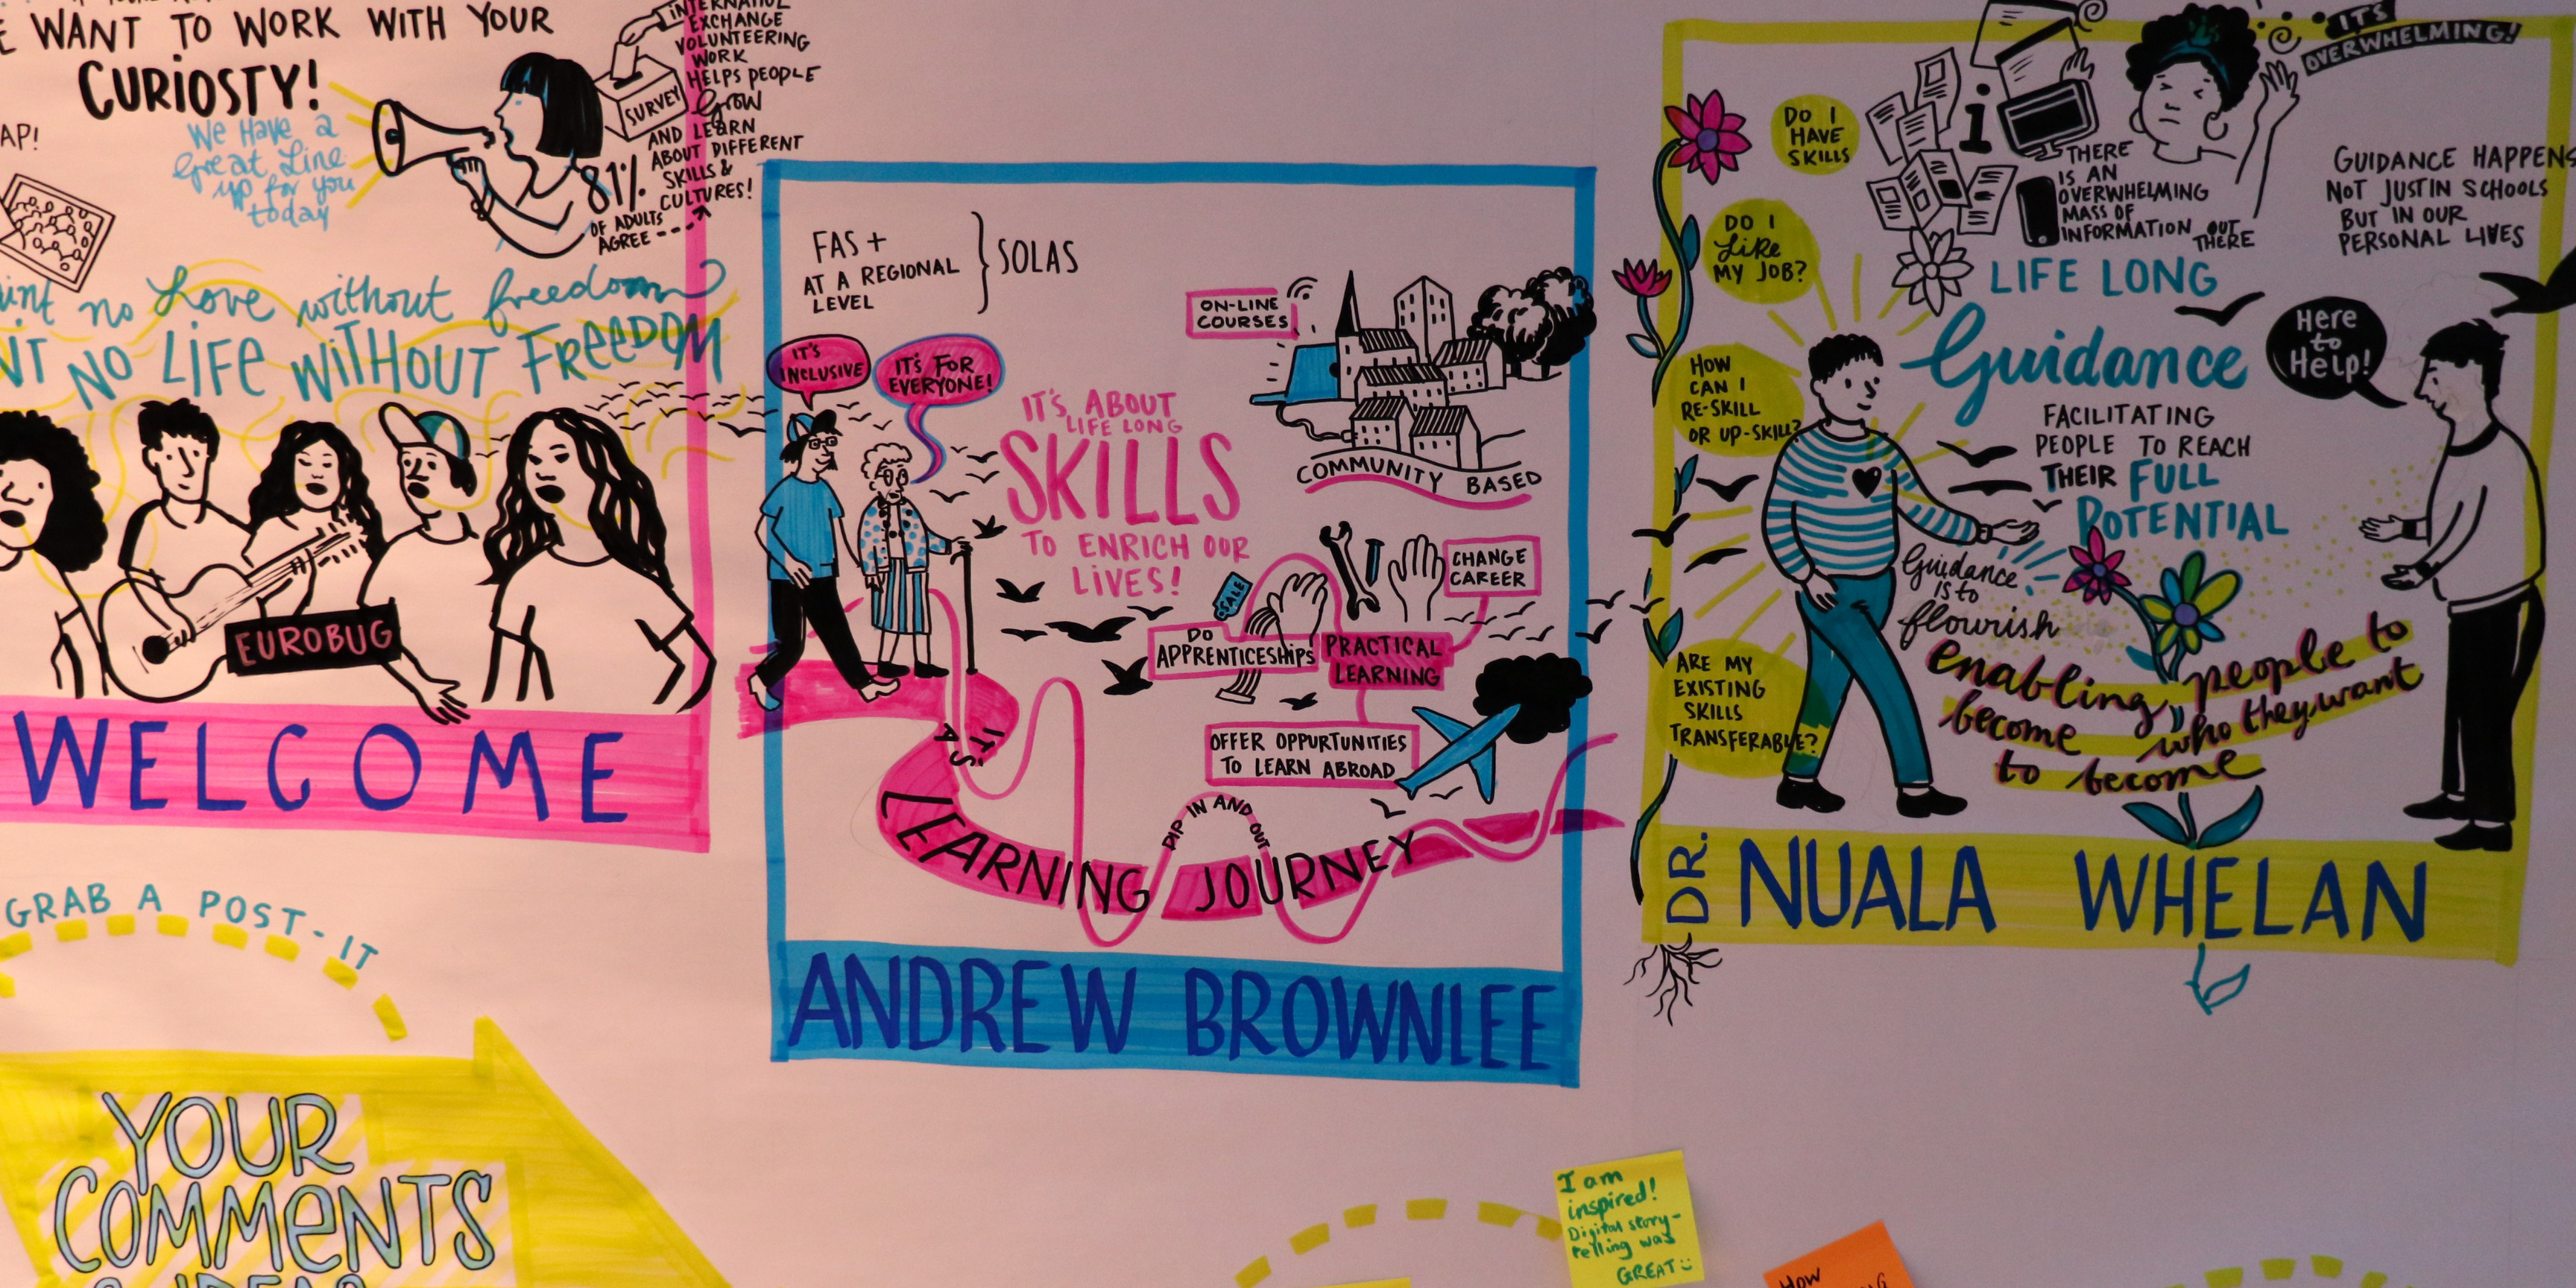 WANT TO WORK WITH YOUR
CURIOSTY!
We Have a
Great Line
up for you
today
AP!
SURVEY
EXCHANGE
VOLUNTEERING
WORK
HELPS PEOPLE
Grow
AND LEARN
ABOUT DIFFERENT
SKILLS &
CULTURES!
81%
OF ADULTS
AGREE
no Love without freedom
NO LIFE WITHOUT FREEDOM
EUROBUG
WELCOME
GRAB A POST-IT
YOUR
COMMENTS
FAS +
AT A REGIONAL
LEVEL
SOLAS
IT'S
INCLUSIVE
IT'S FOR
EVERYONE!
IT'S ABOUT
LIFE LONG
SKILLS
TO ENRICH OUR
LIVES!
ON-LINE
COURSES
COMMUNITY BASED
SALE
DO
APPRENTICESHIPS
PRACTICAL
LEARNING
CHANGE
CAREER
OFFER OPPURTUNITIES
TO LEARN ABROAD
IT'S
A
LEARNING JOURNEY
DIP IN AND OUT
ANDREW BROWNLEE
IT'S
OVERWHELMING!
DO I
HAVE
SKILLS
DO I
Like
MY JOB?
HOW
CAN I
RE-SKILL
OR UP-SKILL?
ARE MY
EXISTING
SKILLS
TRANSFERABLE?
i
THERE
IS AN
OVERWHELMING
MASS OF
INFORMATION OUT
THERE
GUIDANCE HAPPENS
NOT JUST IN SCHOOLS
BUT IN OUR
PERSONAL LIVES
LIFE LONG
Guidance
FACILITATING
PEOPLE TO REACH
THEIR FULL
POTENTIAL
Here
to
Help!
Guidance
is to
flourish
enabling people to
become who they want
to become
DR. NUALA WHELAN
I am
inspired!
Digital story-
telling was
GREAT
HOW